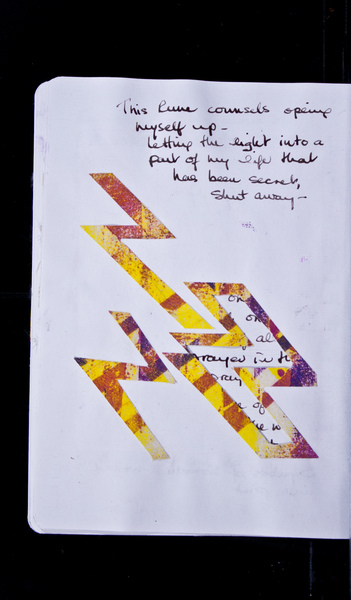 This Rune counsels opening
myself up -
letting the light into a
part of my life that
has been secret,
shut away -
on
on
al
prayed in th
pray
e of
he w